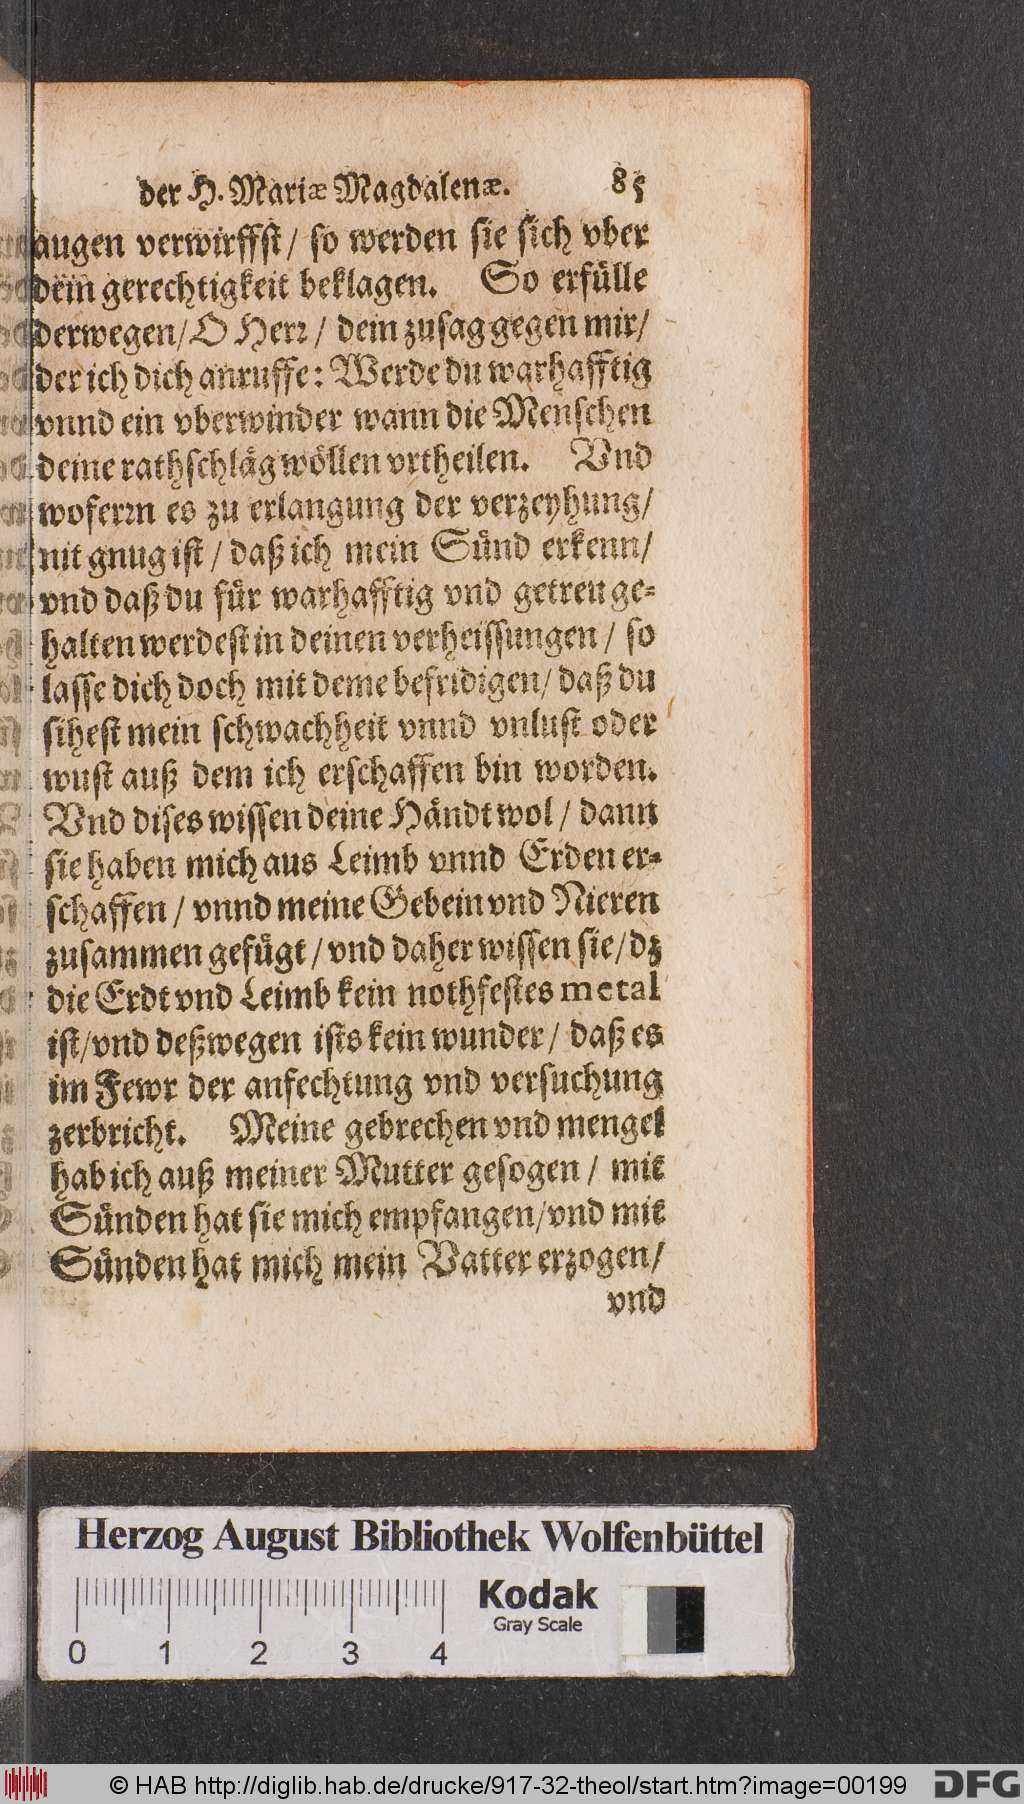 der H. Mariæ Magdalenæ. 85
augen verwirffst / so werden sie sich vber
dein gerechtigkeit beklagen. So erfülle
derwegen/ O Herr / dein zusag gegen mir/
der ich dich anruffe: Werde du warhafftig
vnnd ein vberwinder wann die Menschen
deine rathschläg wöllen vrtheilen. Vnd
woferrn es zu erlangung der verzeyhung/
nit gnug ist / daß ich mein Sünd erkenn/
vnd daß du für warhafftig vnd getreu ge-
halten werdest in deinen verheissungen / so
lasse dich doch mit deme befridigen/ daß du
sihest mein schwachheit vnnd vnlust oder
wust auß dem ich erschaffen bin worden.
Vnd dises wissen deine Händt wol / dann
sie haben mich aus Leimb vnnd Erden er-
schaffen / vnnd meine Gebein vnd Nieren
zusammen gefügt / vnd daher wissen sie/ dz
die Erdt vnd Leimb kein nothfestes metal
ist/ vnd deßwegen ists kein wunder / daß es
im Fewr der anfechtung vnd versuchung
zerbricht. Meine gebrechen vnd mengel
hab ich auß meiner Mutter gesogen / mit
Sünden hat sie mich empfangen/ vnd mit
Sünden hat mich mein Vatter erzogen/
vnd
Herzog August Bibliothek Wolfenbüttel
Kodak
Gray Scale
0 1 2 3 4
© HAB http://diglib.hab.de/drucke/917-32-theol/start.htm?image=00199 DFG